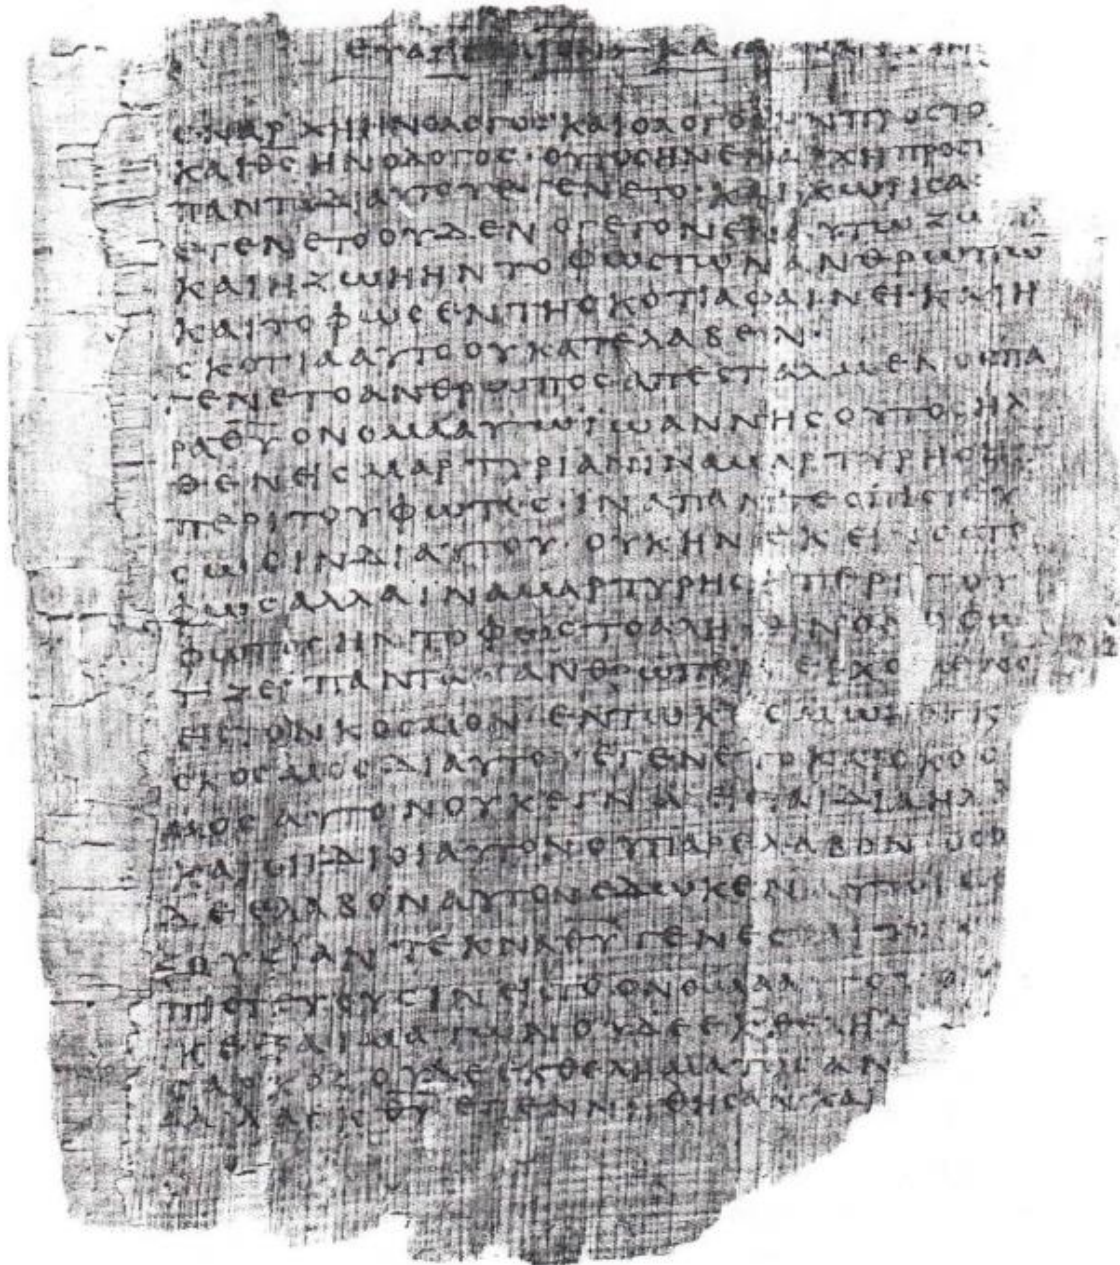 ΕΥΑΓΓΕΛΙΟΝ ΚΑΤΑ
ΕΝΑΡΧΗΗΝΟΛΟΓΟΣΚΑΙΟΛΟΓΟΣΗΝΠΡΟΣΤΟ
ΚΑΙΘ̅Σ̅ΗΝΟΛΟΓΟΣ·ΟΥΤΟΣΗΝΕΝΑΡΧΗΠΡΟΣΤ
ΠΑΝΤΑΔΙΑΥΤΟΥΕΓΕΝΕΤΟ·ΚΑΙΧΩΡΙΣΑ
ΕΓΕΝΕΤΟΟΥΔΕΝΟΓΕΓΟΝΕΕΝΑΥΤΩΖΩ
ΚΑΙΗΖΩΗΗΝΤΟΦΩΣΤΩΝΑΝΘΡΩΠΩ̅
ΚΑΙΤΟΦΩΣΕΝΤΗΣΚΟΤΙΑΦΑΙΝΕΙ·ΚΑΙΗ
ΣΚΟΤΙΑΑΥΤΟΟΥΚΑΤΕΛΑΒΕΝ·
ΓΕΝΕΤΟΑΝΘΡΩΠΟΣΑΠΕΣΤΑΛΜΕΝΟΣΠΑ
ΡΑΘ̅Υ̅ΟΝΟΜΑΑΥΤΩΪΩΑΝΝΗΣΟΥΤΟΣΗΛ
ΘΕΝΕΙΣΜΑΡΤΥΡΙΑΝΙΝΑΜΑΡΤΥΡΗΣΗ
ΠΕΡΙΤΟΥΦΩΤΟΣ·ΙΝΑΠΑΝΤΕΣΠΙΣΤΕΥ
ΣΩΣΙΝΔΙΑΥΤΟΥ·ΟΥΚΗΝΕΚΕΙΝΟΣΤΟ
ΦΩΣΑΛΛΑΙΝΑΜΑΡΤΥΡΗΣΗΠΕΡΙΤΟΥ
ΦΩΤΟΣΗΝΤΟΦΩΣΤΟΑΛΗΘΙΝΟΝΟΦΩ
ΤΙΖΕΙΠΑΝΤΑΑΝΘΡΩΠΟΝΕΡΧΟΜΕΝΟΝ
ΕΙΣΤΟΝΚΟΣΜΟΝ·ΕΝΤΩΚΟΣΜΩΗΝΚ
ΟΚΟΣΜΟΣΔΙΑΥΤΟΥΕΓΕΝΕΤΟΚΑΙΟΚΟΣ
ΜΟΣΑΥΤΟΝΟΥΚΕΓΝΩΕΙΣΤΑΙΔΙΑΗΛΘ
ΚΑΙΟΙΙΔΙΟΙΑΥΤΟΝΟΥΠΑΡΕΛΑΒΟΝ·ΟΣΟ
ΔΕΕΛΑΒΟΝΑΥΤΟΝΕΔΩΚΕΝΑΥΤΟΙΣΕ
ΞΟΥΣΙΑΝΤΕΚΝΑΘ̅Υ̅ΓΕΝΕΣΘΑΙΤΟΙΣ
ΠΙΣΤΕΥΟΥΣΙΝΕΙΣΤΟΟΝΟΜΑΑΥΤΟΥ·ΟΙ
ΚΕΞΑΙΜΑΤΩΝΟΥΔΕΕΚΘΕΛΗ
ΣΑΡΚΟΣΟΥΔΕΕΚΘΕΛΗΜΑΤΟΣΑΝ
ΑΛΛΑΕΚΘ̅Υ̅ΕΓΕΝΝΗΘΗΣΑΝΚΑΙ